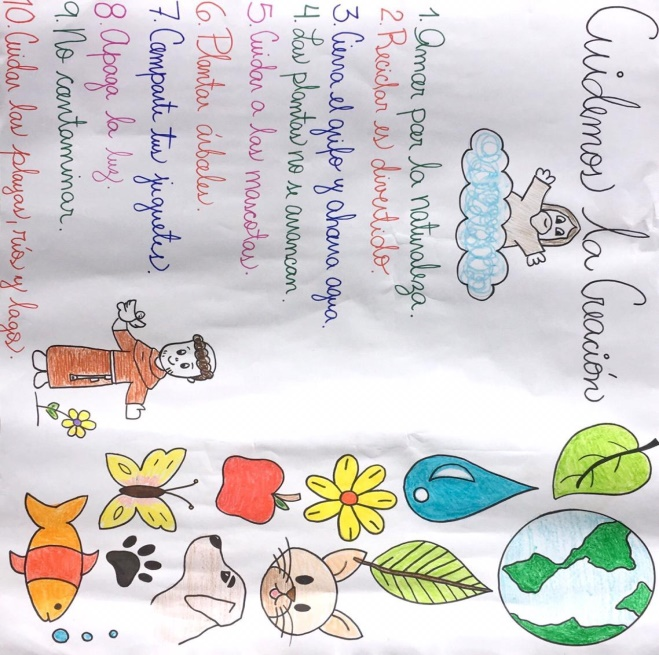 Cuidemos la Creación
1. Amar par la naturaleza.
2. Reciclar es divertido.
3. Cierra el grifo y ahorra agua.
4. Las plantas no se arrancan.
5. Cuidar a las mascotas.
6. Plantar árboles.
7. Comparte tus juguetes.
8. Apaga la luz.
9. No contaminar.
10. Cuidar las playas, ríos y lagos.